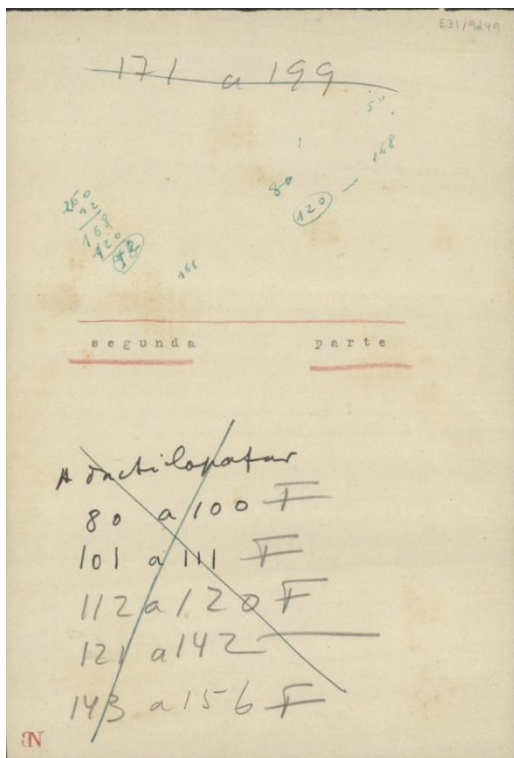 E31/9849
171 a 199
50
168
80
120
168
120
168
segunda parte
A dactilografar
80 a 100 F
101 a 111 F
112 a 120 F
121 a 142
143 a 156 F
BN